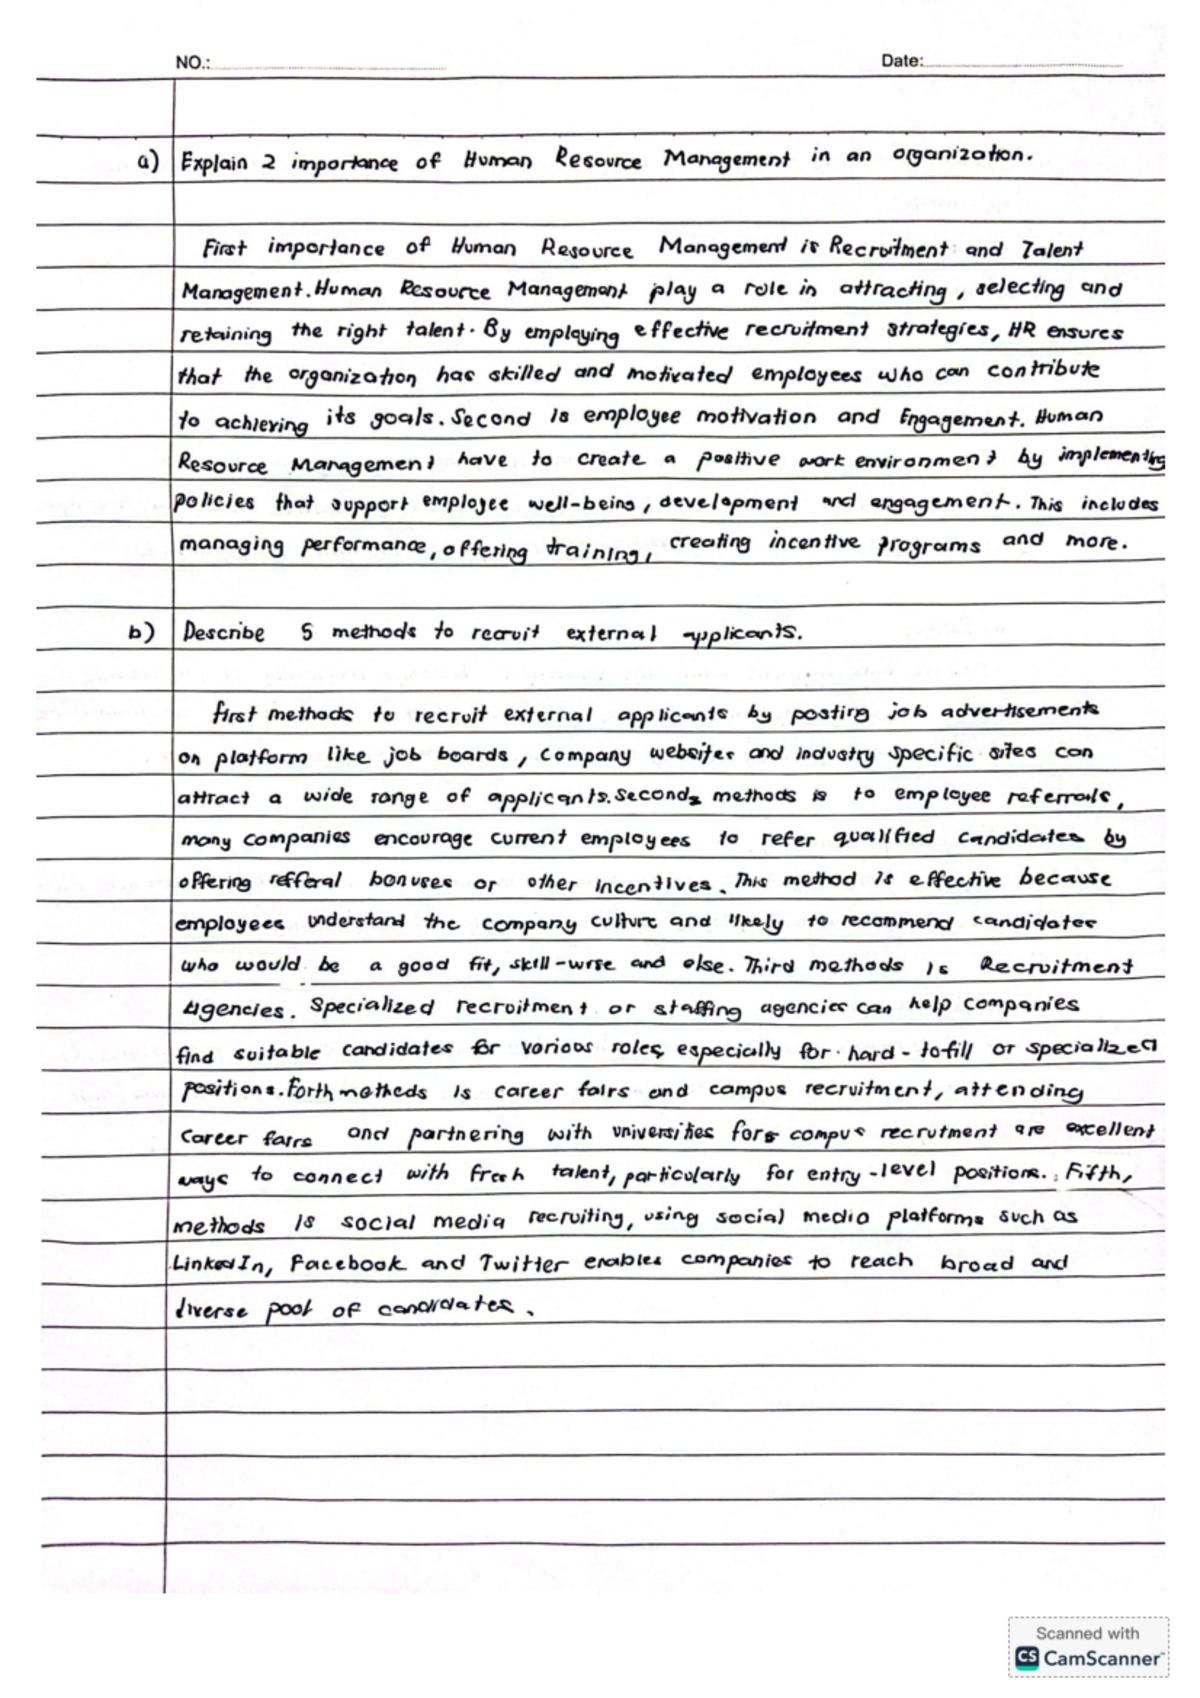 NO.:
Date:
a) Explain 2 importance of Human Resource Management in an organization.
First importance of Human Resource Management is Recruitment and Talent
Management. Human Resource Management play a role in attracting, selecting and
retaining the right talent. By employing effective recruitment strategies, HR ensures
that the organization has skilled and motivated employees who can contribute
to achieving its goals. Second is employee motivation and Engagement. Human
Resource Management have to create a positive work environment by implementing
policies that support employee well-being, development and engagement. This includes
managing performance, offering training, creating incentive programs and more.
b) Describe 5 methods to recruit external applicants.
First methods to recruit external applicants by posting job advertisements
on platform like job boards, company websites and industry specific sites can
attract a wide range of applicants. Second, methods is to employee referrals,
many companies encourage current employees to refer qualified candidates by
offering refferal bonuses or other incentives. This method is effective because
employees understand the company culture and likely to recommend candidates
who would be a good fit, skill-wise and else. Third methods is Recruitment
Agencies. Specialized recruitment or staffing agencies can help companies
find suitable candidates for various roles, especially for hard-tofill or specialized
positions. Forth methods is career fairs and campus recruitment, attending
career fairs and partnering with universities for campus recrutment are excellent
ways to connect with fresh talent, particularly for entry-level positions. Fifth,
methods is social media recruiting, using social media platforms such as
LinkedIn, Facebook and Twitter enables companies to reach broad and
diverse pool of candidates.
Scanned with
CS CamScanner